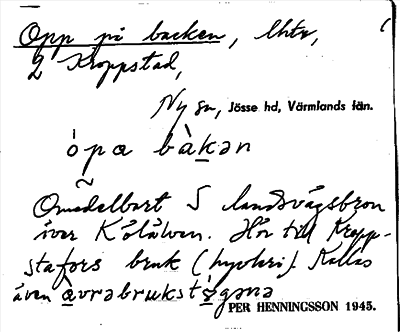 Opp på backen, lht,
2 Kroppstad,
Ny sn, Jösse hd, Värmlands län.
ópa bàkan
Omedelbart S landsvägsbron
över Kölälven. Hör till Kropp-
stafors bruk (hyvleri). Kallas
även àvrabrukstå̀gana
PER HENNINGSSON 1945.